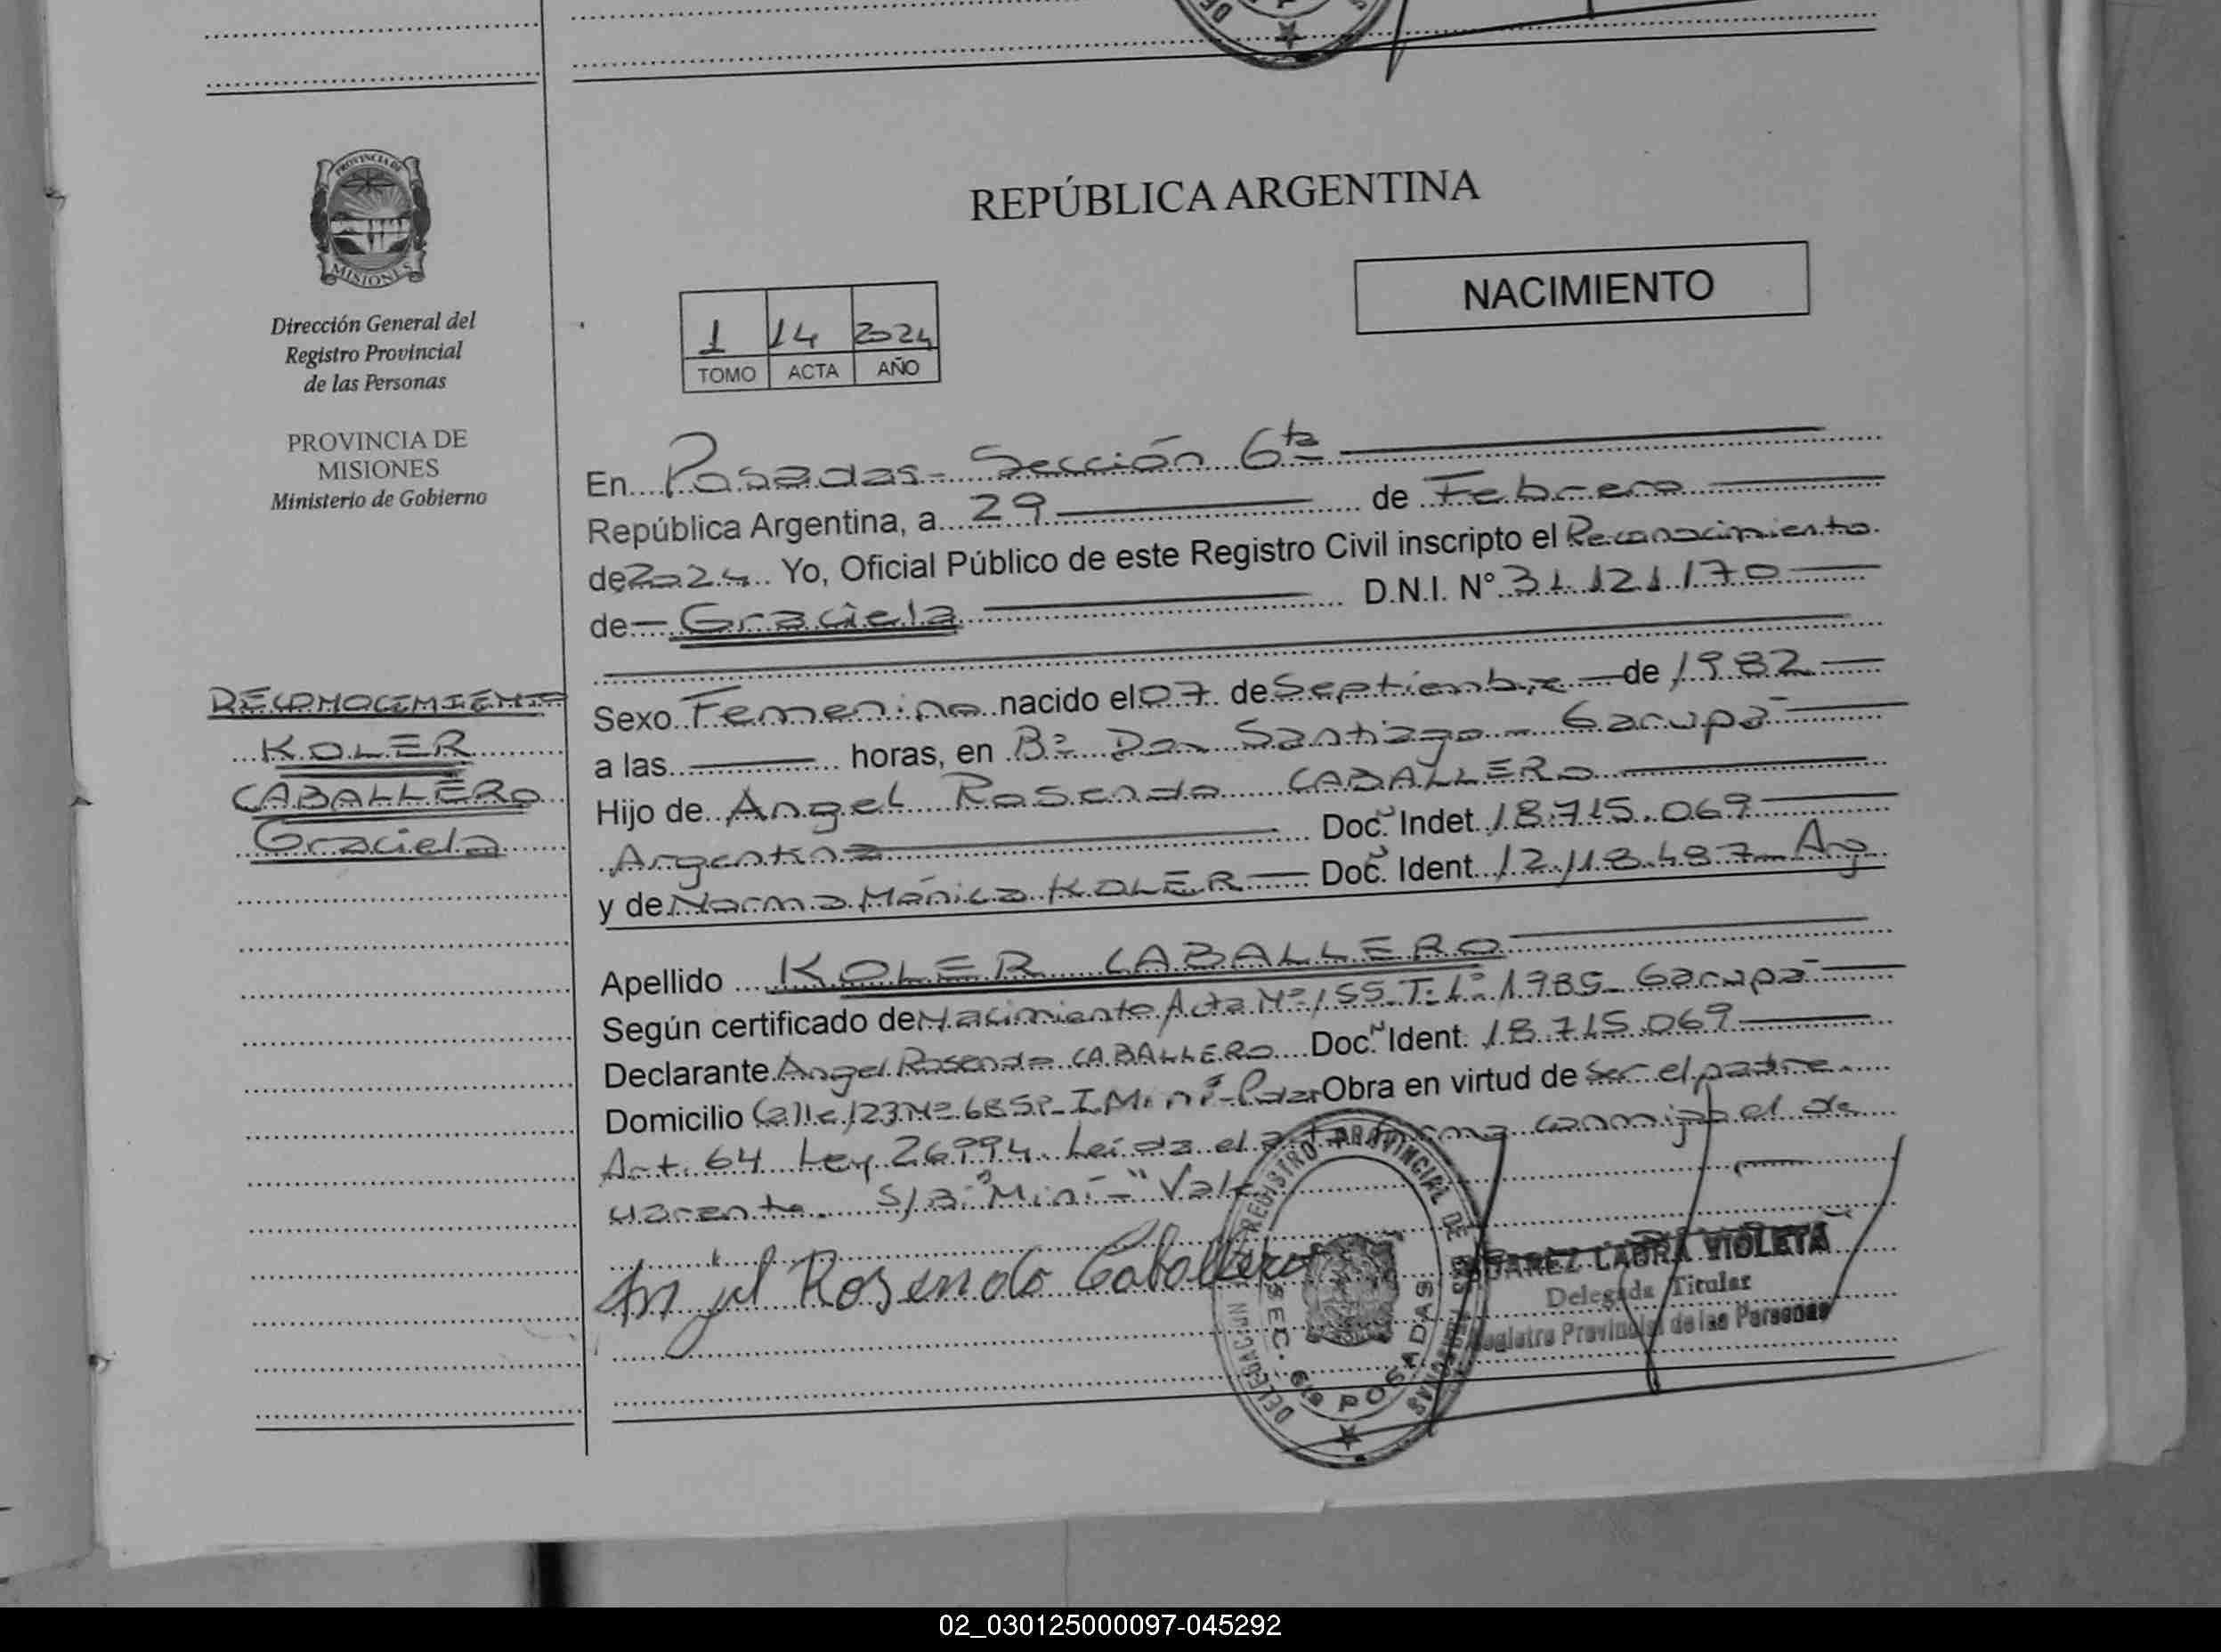 PROVINCIA DE
MISIONES
Dirección General del
Registro Provincial
de las Personas
PROVINCIA DE
MISIONES
Ministerio de Gobierno
RECONOCIMIENTO
KOLER
CABALLERO
Graciela
REPÚBLICA ARGENTINA
NACIMIENTO
1 14 2024
TOMO ACTA AÑO
En Posadas - Sección 6ta
República Argentina, a 29 de Febrero
de 2024 Yo, Oficial Público de este Registro Civil inscripto el Reconocimiento
de Graciela D.N.I. N° 31.121.170
Sexo Femenino nacido el 07 de Septiembre de 1982
a las horas, en Bº Don Santiago - Garupá
Hijo de Angel Rosendo CABALLERO
Argentina Doc. Indet. 18.715.069
y de Norma Mónica KOLER Doc. Ident. 12.118.487 - Arg
Apellido KOLER CABALLERO
Según certificado de Nacimiento Acta Nº 155 T: 1º 1985 - Garupá
Declarante Angel Rosendo CABALLERO Doc. Ident. 18.715.069
Domicilio Calle 123 Nº 6858 - I. Miní - Pdas Obra en virtud de ser el padre
Art. 64 Ley 26994. Leída el acta firma conmigo el de
clarante. S/B "Miní" Vale
Angel Rosendo Caballero
REGISTRO PROVINCIAL DE LAS PERSONAS
DELEGACION
SEC. 6ta POSADAS
SUAREZ LAURA VIOLETA
Delegada Titular
Registro Provincial de las Personas
02_030125000097-045292